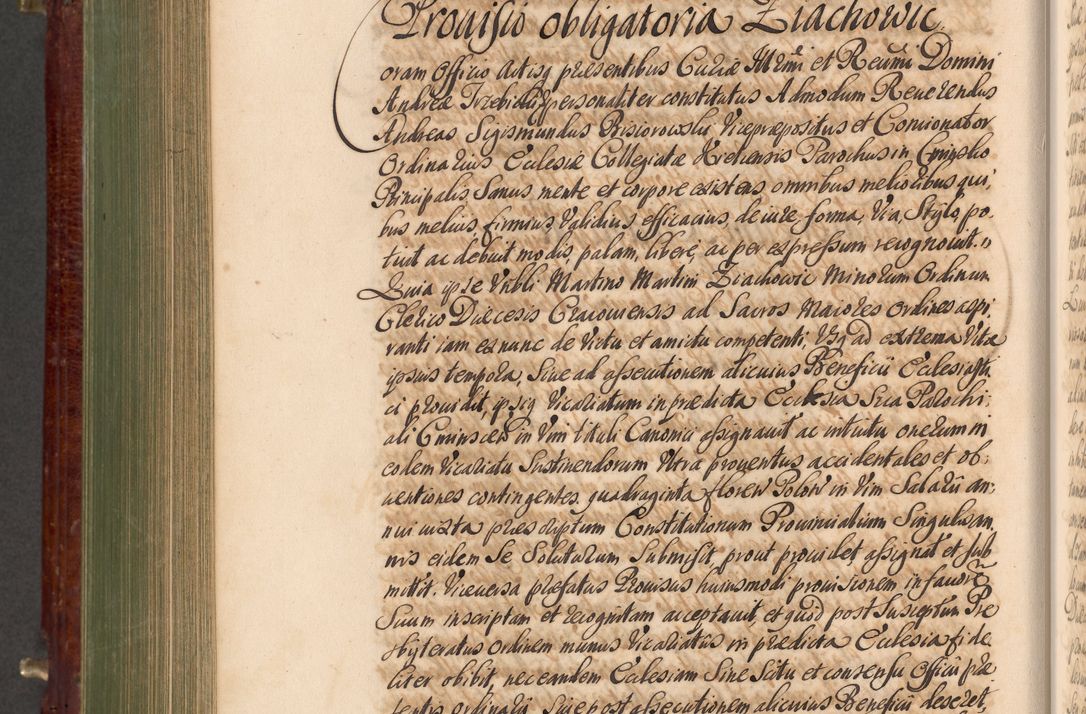 Prouisio obligatoria Ziachowic.
oram Officio Actisq presentibus Curiæ Illrmi et Reurmi Domini
Andreæ Trzebicki personaliter constitutus Admodum Reuerendus
Andreas Sigismundus Præpositus et Concionator
Ordinarius Ecclesiæ Collegiatæ Kielcensis Parochus in
Principalis, Sanus mente et corpore existens omnibus melioribus qui,
bus melius, firmius, Validius, efficacius, de iure, forma, Via, Stylo, po,
tuit ac debuit modis, palam, libere, ac per expressum recognouit.
Quia ipse Martino Martini Ziachowic Minorum Ordinum
Clerico Diæcesis Cracouiensis ad Sacros Maiores Ordines aspi,
ranti iam ex nunc de Victu et amictu competenti, Vsq ad extrema Vitæ
ipsius tempora, Siue ad assecutionem alicuius Beneficii Ecclesiasti,
ci prouidit, ipsiq Vicariatum in prædicta Ecclesia Sua Parochi,
ali in Vim tituli Canonici assignauit ac intuitu onerum in
eodem Vicariatu Sustinendorum Vltra prouentus accidentales et ob,
uentiones contingentes, quadraginta floren Polon in Vim Salarii an,
nui iuxta præscriptum Constitutionum Prouincialium Singulis an,
nis eidem Se Soluturum Submisit, prout prouidet, assignat et sub
mittit. Viceuersa præfatus Prouisus huiusmodi prouisionem in fauore
Suum inscriptam et recognitam acceptauit, et quod post Susceptum Pre
sbyteratus Ordinem munus Vicariatus in prædicta Ecclesia fide
liter obibit, nec eandem Ecclesiam Sine Scitu et consensu Officii præ
sentis ordinarii, Siue post assecutionem alicuius Beneficii deseret,